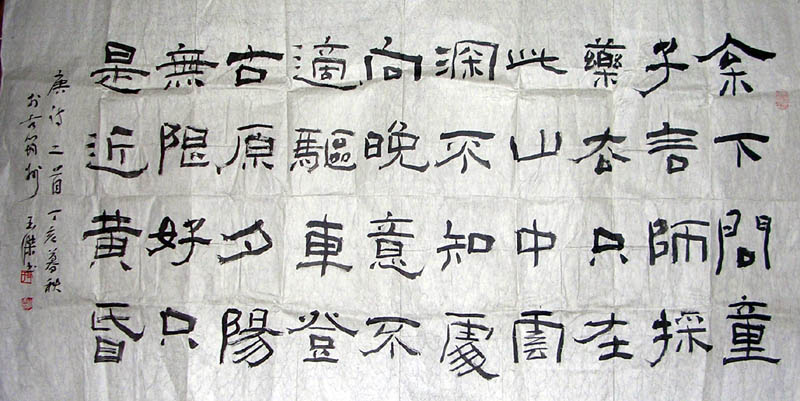 松下問童
子言師採
藥去只在
此山中雲
深不知處
向晚意不
適驅車登
古原夕陽
無限好只
是近黄昏
唐诗二首丁亥暮秋
於古州王傑书